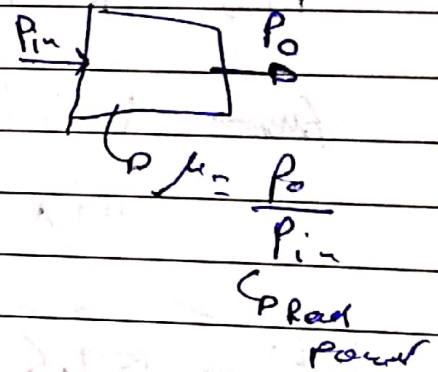 Pin
Po
μ = Po
Pin
Real
power